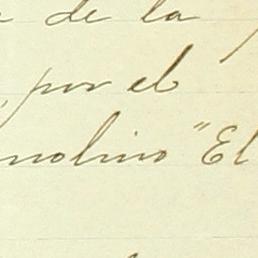 de la
por el
molino "El